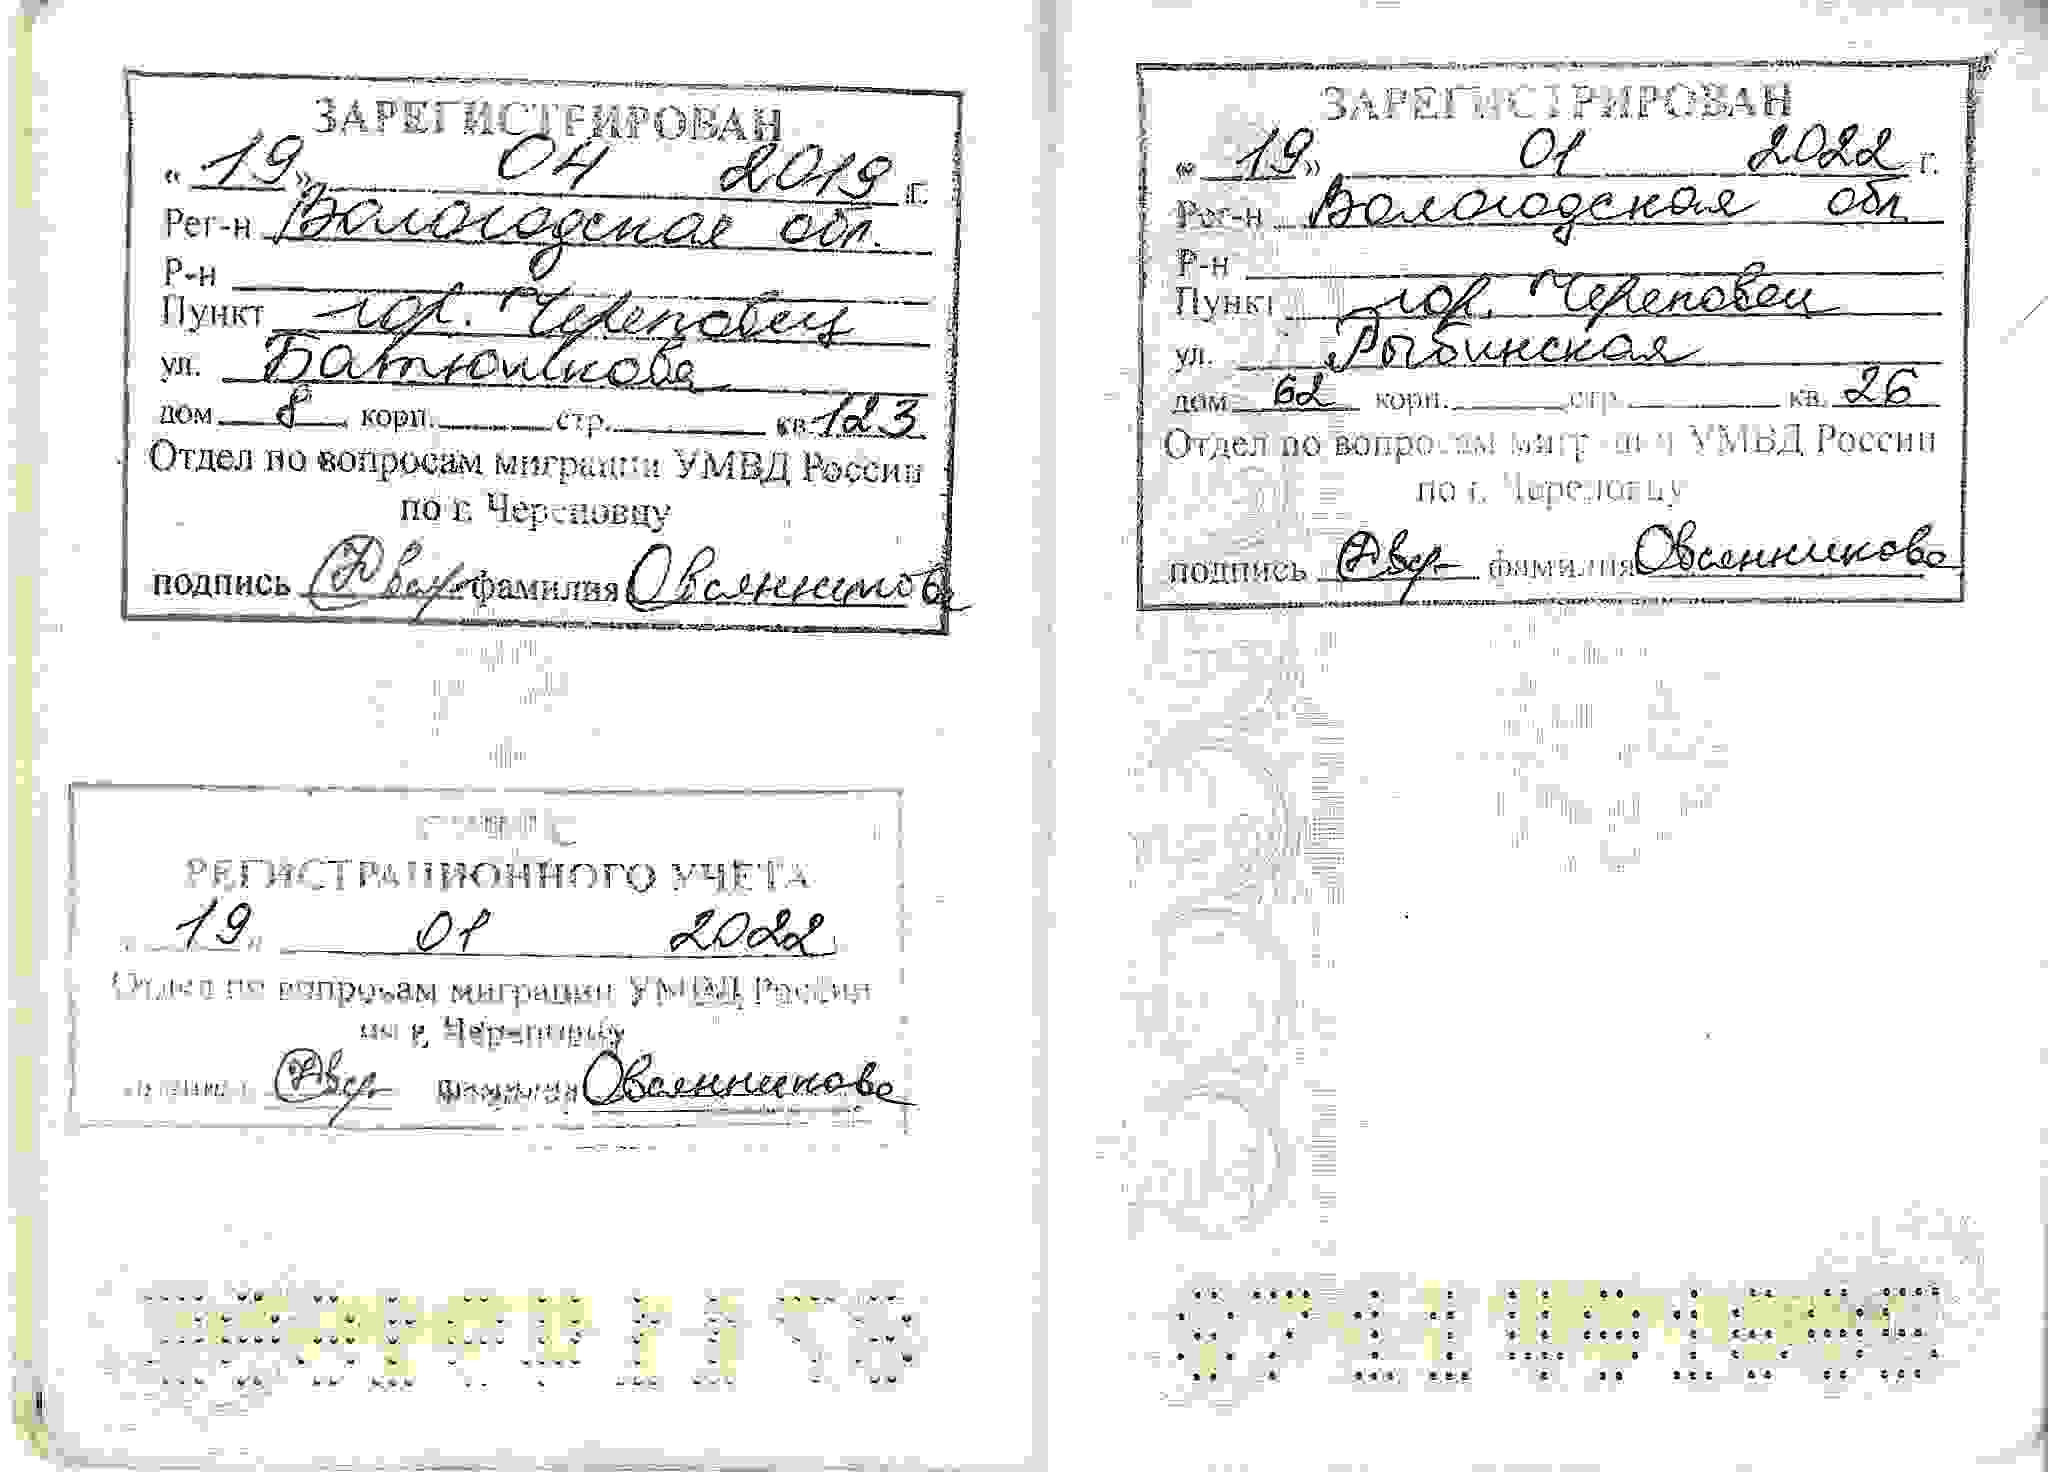 ЗАРЕГИСТРИРОВАН
« 19 » 04 2019 г.
Рег-н Вологодская обл.
Р-н
Пункт гор. Череповец
ул. Батюшкова
дом 8 корп. стр. кв. 123
Отдел по вопросам миграции УМВД России
по г. Череповцу
подпись фамилия Овсянникова
РЕГИСТРАЦИОННОГО УЧЕТА
« 19 » 01 2022
Отдел по вопросам миграции УМВД России
по г. Череповцу
подпись фамилия Овсянникова
ЗАРЕГИСТРИРОВАН
« 19 » 01 2022 г.
Рег-н Вологодская обл
Р-н
Пункт гор. Череповец
ул. Рыбинская
дом 62 корп. стр. кв. 26
Отдел по вопросам миграции УМВД России
по г. Череповцу
подпись фамилия Овсянникова